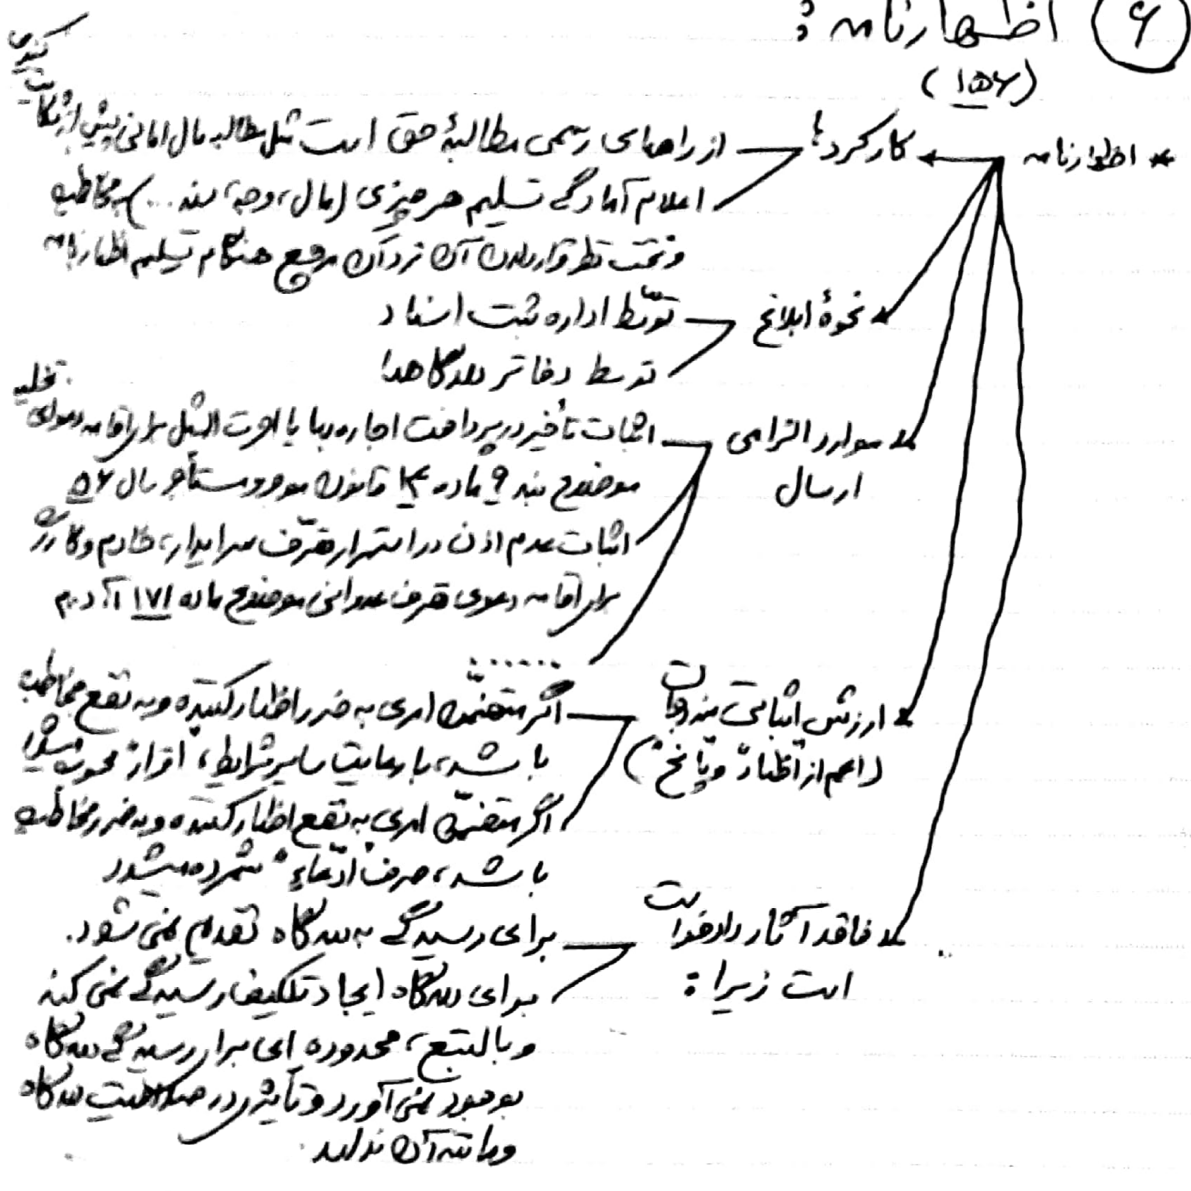 ۶ اظهارنامه :
(۱۵۶)
* اظهارنامه
کارکردها
از راههای رسمی مطالبهٔ حق است مثل مطالبه مال امانی پیش از شکایت کیفری
اعلام آمادگی تسلیم هر چیزی (مال، وجه، سند ...) به مخاطب
و تحت نظر قرار دادن آن نزد آن مرجع هنگام تسلیم اظهارنامه
نحوهٔ ابلاغ
توسّط اداره ثبت اسناد
توسط دفاتر دادگاه‌ها
موارد الزامی
ارسال
اثبات تأخیر در پرداخت اجاره بها یا اجرت المثل برای اقامه دعوای تخلیه
موضوع بند ۹ ماده ۱۴ قانون موجر و مستأجر سال ۵۶
اثبات عدم اذن در استمرار تصرّف سرایدار، خادم و کارگر
برای اقامه دعوی تصرف عدوانی موضوع ماده ۱۷۱ آ.د.م
.......
ارزش اثباتی مندرجات
(اعم از "اظهار" و "پاسخ")
اگر متضمّن امری به ضرر اظهارکننده و به نفع مخاطب
باشد، با رعایت سایر شرایط، "اقرار" محسوب میشود
اگر متضمّن امری به نفع اظهارکننده و به ضرر مخاطب
باشد، صرف "ادّعاء" شمرده میشود
فاقد آثار دادخواست
است زیرا :
برای رسیدگی به دادگاه تقدیم نمی شود.
برای دادگاه ایجاد تکلیف رسیدگی نمی کند
و بالتبع، محدوده ای برای رسیدگی دادگاه
بوجود نمی آورد و تأثیری در صلاحیت دادگاه
و مانند آن ندارد.